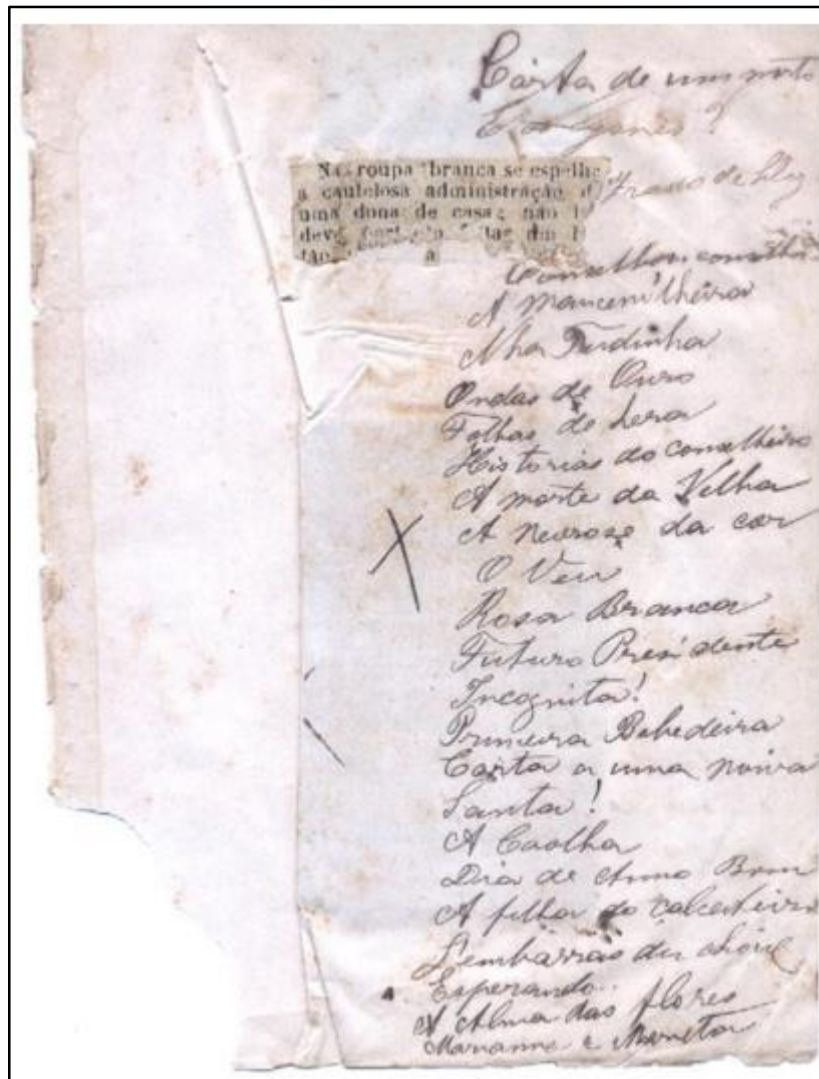 Carta de um
Na roupa branca se espelh
a cautelosa administração d
uma dona de casa; não
deve
A Mancenilheira
Nha Tudinha
Ondas de Ouro
Folhas de hera
Historias do conselheiro
A morte da Velha
A Nevrose da cor
O Veu
Rosa Branca
Futuro Presidente
Incognita!
Primeira Bebedeira
Carta a uma noiva
Santa!
A Caolha
Dia de Anno Bom
A filha do
L'embarras du choix
Esperando..
A Alma das flores
Marianna e